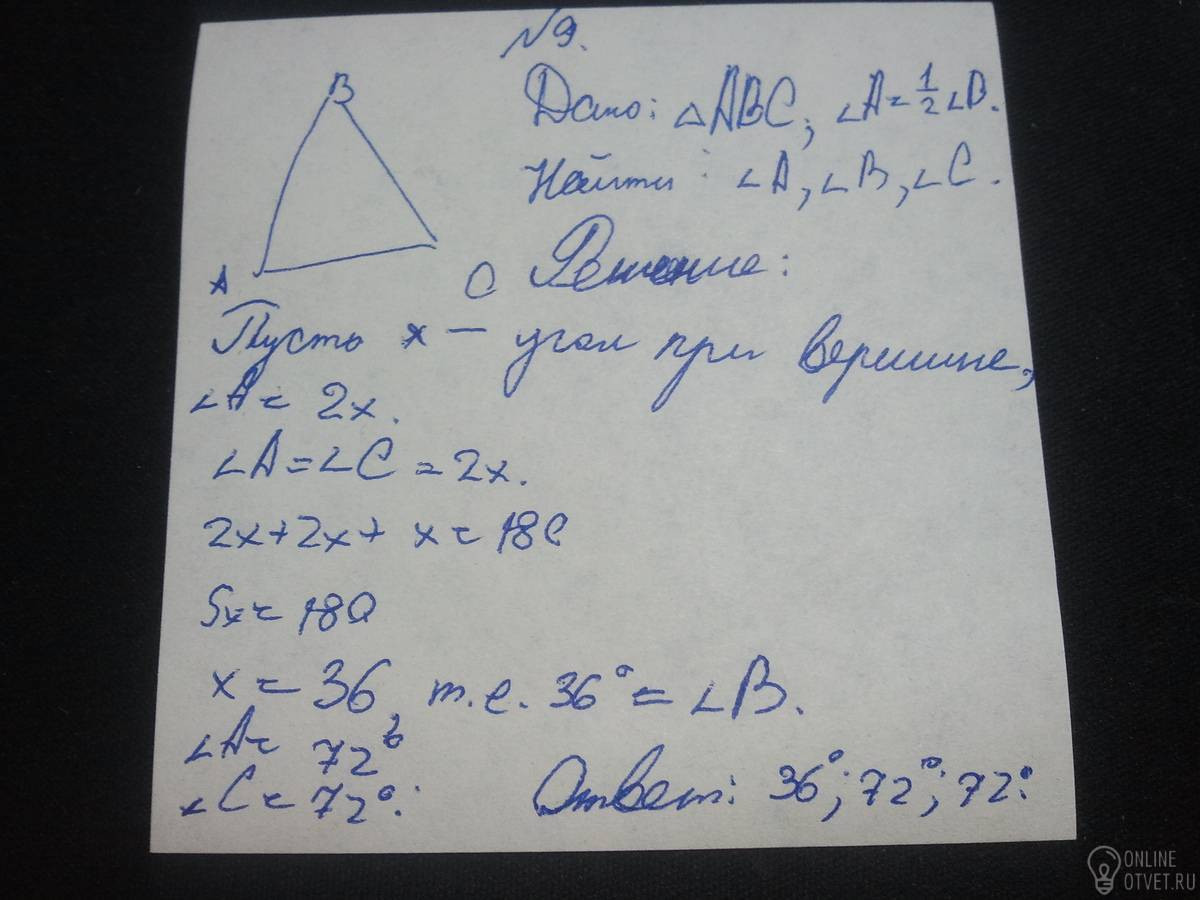 №9.
B
Дано: △ABC; ∠A=1/2∠B.
Найти: ∠A, ∠B, ∠C.
A
C
Решение:
Пусть x — угол при вершине,
∠A = 2x.
∠A=∠C=2x.
2x+2x+ x = 180
5x = 180
x = 36, т.е. 36° = ∠B.
∠A = 72°
∠C = 72°.
Ответ: 36°; 72°; 72°.
ONLINE
OTVET.RU